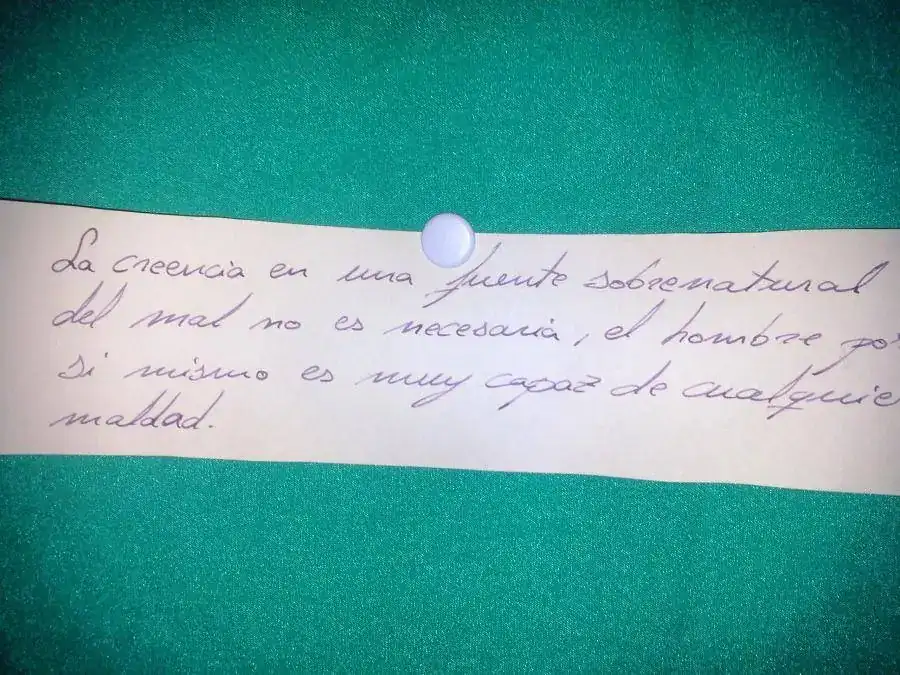 La creencia en una fuente sobrenatural
del mal no es necesaria, el hombre po
si mismo es muy capaz de cualquie
maldad.